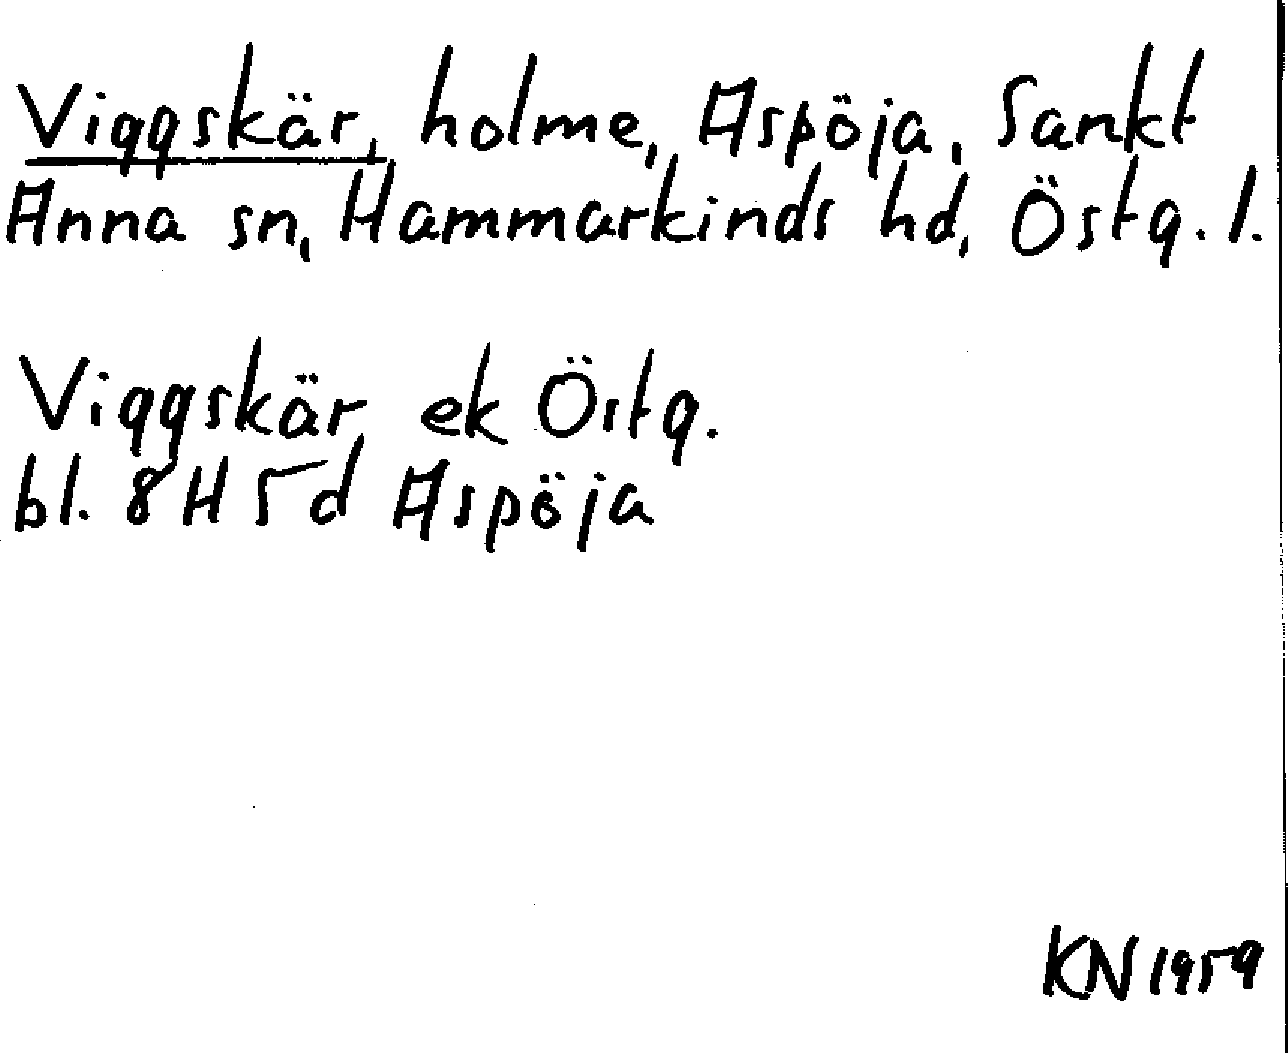 Viggskär, holme, Aspöja, Sankt
Anna sn, Hammarkinds hd, Östg. l.
Viggskär ek Östg.
bl. 8H 5d Aspöja
KN 1959